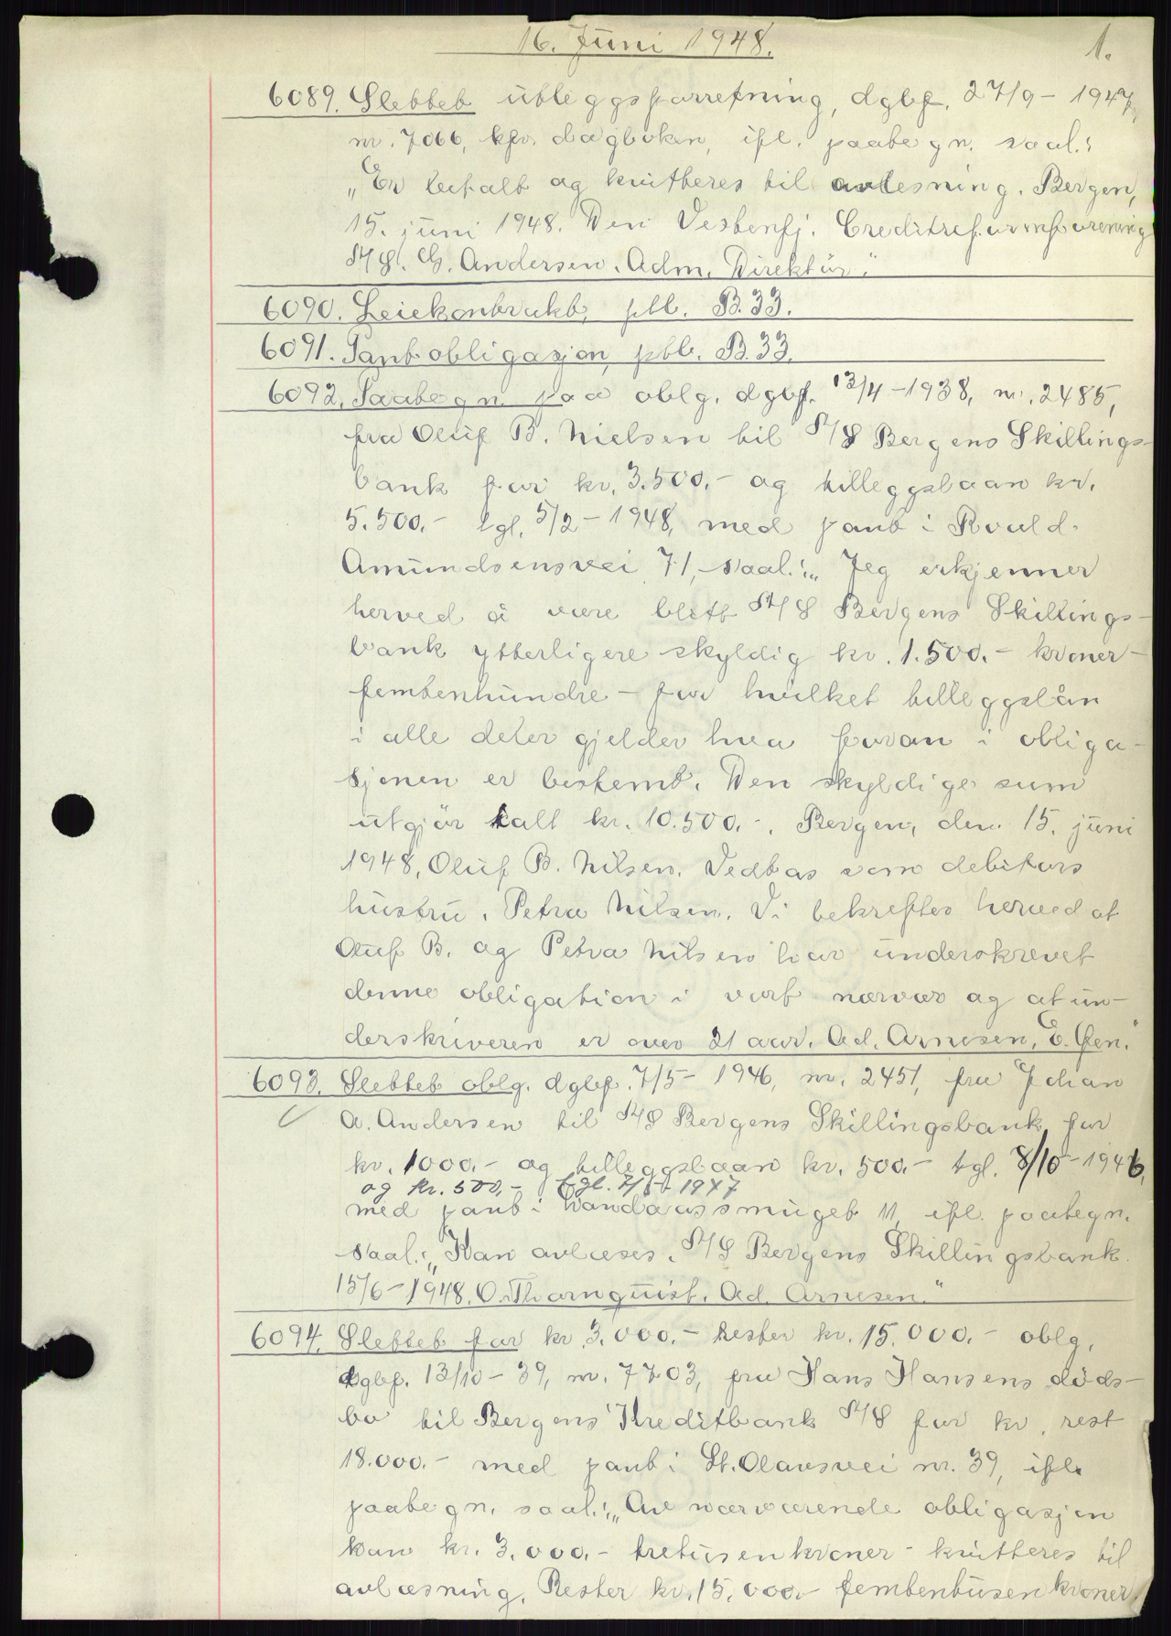 16. Juni 1948.
1.
6089. Slettet utleggsforretning, dglbf. 27/9 - 1947,
nr. 7066, kfr. dagboken, ifl. paategn. saal.:
"Er betalt og kvitteres til avlesning. Bergen,
15. juni 1948. Den Vestenfj. Creditreformforening
A/S. G. Andersen. Adm. Direktør."
6090. Leiekontrakt, ptl. B. 33.
6091. Pantobligasjon, ptl. B. 33.
6092. Paategn. paa oblg. dglbf. 13/4 - 1938, nr. 2485,
fra Oluf B. Nielsen til A/S Bergens Skillings-
bank for kr. 3.500.- og tilleggslaan kr.
5.500.- tgl. 5/2 - 1948, med pant i Roald
Amundsensvei 71, saal.: "Jeg erkjenner
herved å være blitt A/S Bergens Skillings-
bank ytterligere skyldig kr. 1.500.- kroner-
femtenhundre - for hvilket tilleggslån
i alle deler gjelder hva foran i obliga-
sjonen er bestemt. Den skyldige sum
utgjør ialt kr. 10.500.-. Bergen, den 15. juni
1948, Oluf B. Nilsen. Vedtas som debitors
hustru. Petra Nilsen. Vi bekrefter herved at
Oluf B. og Petra Nilsen har underskrevet
denne obligation i vort nærvær og at un-
derskriveren er over 21 aar. Ad. Arnesen. E. Øen."
6093. Slettet oblg. dglbf. 7/5 - 1946, nr. 2451, fra Johan
A. Andersen til A/S Bergens Skillingsbank for
kr. 1000.- og tilleggslaan kr. 500.- tgl. 8/10 - 1946,
og kr. 500,- tgl. 1947
med pant i smuget 11, ifl. paategn.
saal.: "Kan avlæses. A/S Bergens Skillingsbank
15/6 - 1948. O. Thornquist. Ad. Arnesen."
6094. Slettet for kr. 3.000.- Rester kr. 15.000.- oblg.
dglbf. 13/10 - 39, nr. 7703, fra Hans Hansens døds-
bo til Bergens Kreditbank A/S for kr. rest
18.000.- med pant i St. Olavsvei nr. 39, ifl.
paategn. saal.: "Av nærværende obligasjon
kan kr. 3.000.- tretusen kroner - kvitteres til
avlæsning. Rester kr. 15.000.- femtentusen kroner.